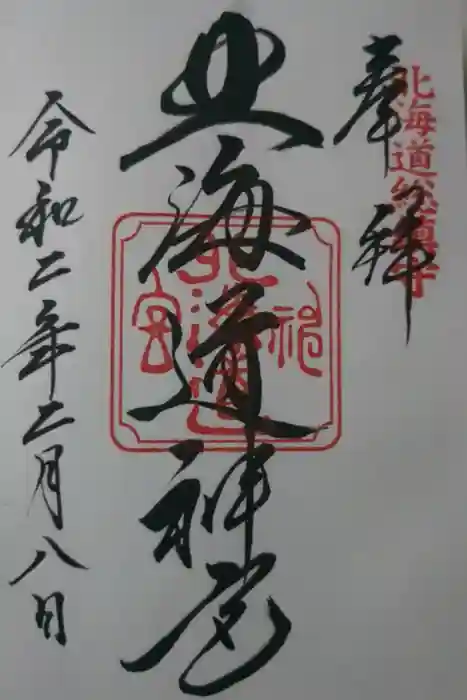 奉拝
北海道総鎮守
北海道神宮
北海道
神
宮
令和二年二月八日